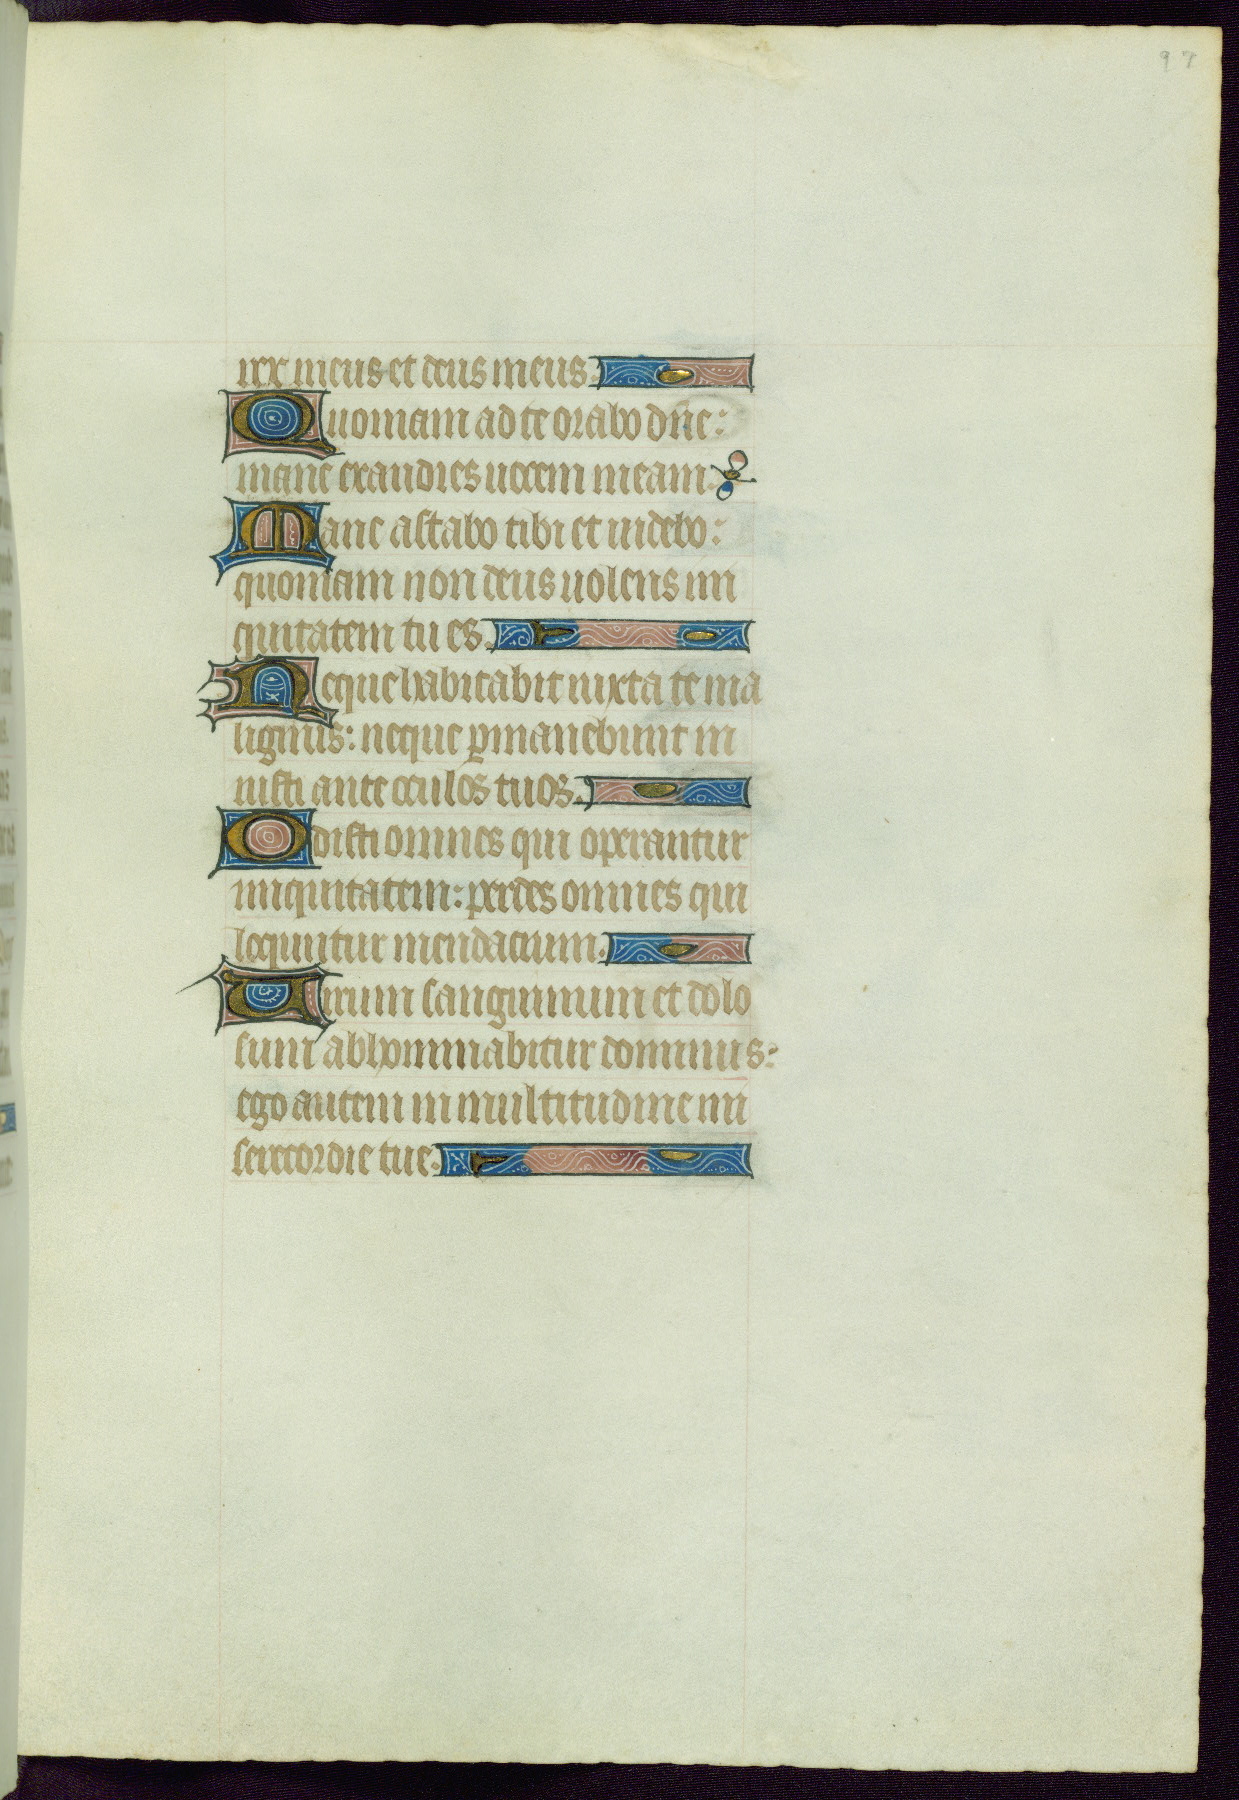 97
rex meus et deus meus.
Quoniam ad te orabo dñe:
mane exaudies uocem meam.
Mane astabo tibi et uidebo:
quoniam non deus uolens ini
quitatem tu es.
Neque habitabit iuxta te ma
lignus: neque ꝑmanebunt in
iusti ante oculos tuos.
Odisti omnes qui operantur
iniquitatem: perdes omnes qui
loquntur mendacium.
Uirum sanguinum et dolo
sum abhominabitur dominus:
ego autem in multitudine mi
sericordie tue.